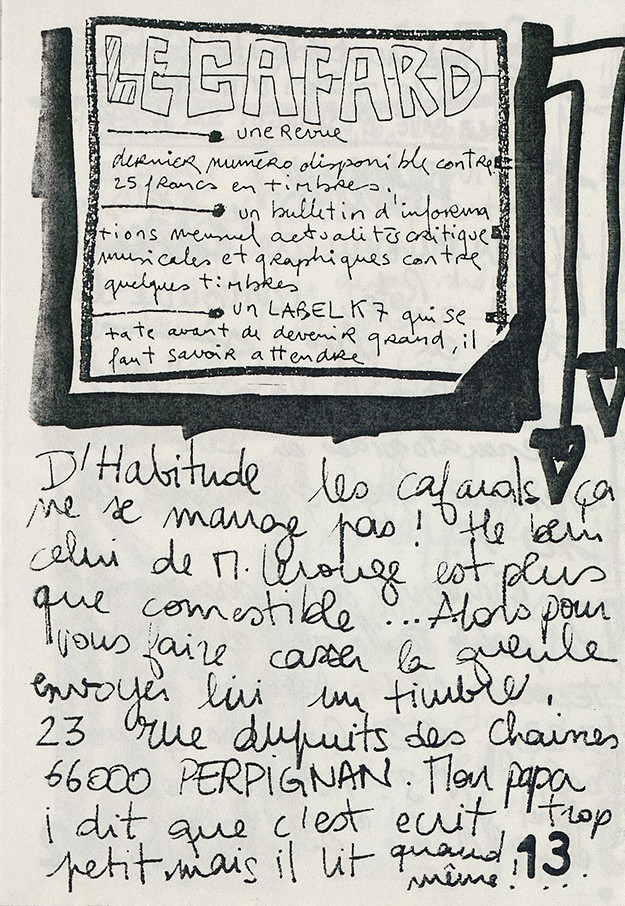 LE CAFARD
une Revue
dernier numéro disponible contre
25 francs en timbres.
un bulletin d'informa
tions mensuel actualités critique
musicales et graphiques contre
quelques timbres
un LABEL K7 qui se
tate avant de devenir grand, il
faut savoir attendre
D'Habitude les cafards ça
ne se mange pas ! He ben
celui de M. Lerouge est plus
que comestible ... Alors pour
vous faire casser la gueule
envoyer lui un timbre.
23 rue dupuits des chaines
66000 PERPIGNAN. Mon papa
i dit que c'est ecrit trop
petit mais il lit quand
même ! ...
13